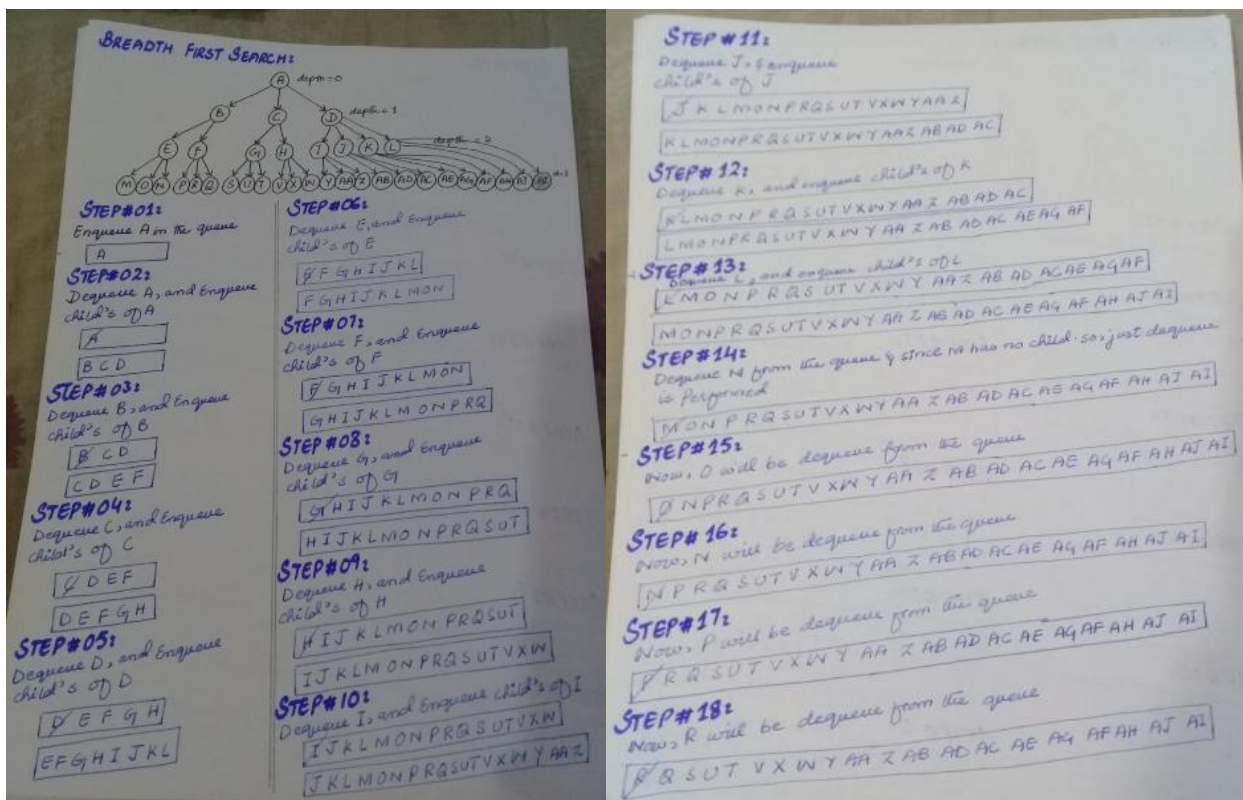 BREADTH FIRST SEARCH:
A depth=0
B C D depth=1
E F G H I J K L depth=2
M O N P R Q S U T V X W Y AA Z AB AD AC AE AG AF AH AJ AI
STEP#01:
Enqueue A in the queue
A
STEP#02:
Dequeue A, and Enqueue
child's of A
A
B C D
STEP#03:
Dequeue B, and Enqueue
child's of B
B C D
C D E F
STEP#04:
Dequeue C, and Enqueue
child's of C
C D E F
D E F G H
STEP#05:
Dequeue D, and Enqueue
child's of D
D E F G H
E F G H I J K L
STEP#06:
Dequeue E, and Enqueue
child's of E
E F G H I J K L
F G H I J K L M O N
STEP#07:
Dequeue F, and Enqueue
child's of F
F G H I J K L M O N
G H I J K L M O N P R Q
STEP#08:
Dequeue G, and Enqueue
child's of G
G H I J K L M O N P R Q
H I J K L M O N P R Q S U T
STEP#09:
Dequeue H, and Enqueue
child's of H
H I J K L M O N P R Q S U T
I J K L M O N P R Q S U T V X W
STEP#10:
Dequeue I, and Enqueue child's of I
I J K L M O N P R Q S U T V X W
J K L M O N P R Q S U T V X W Y AA Z
STEP#11:
Dequeue J, & enqueue
child's of J
J K L M O N P R Q S U T V X W Y AA Z
K L M O N P R Q S U T V X W Y AA Z AB AD AC
STEP#12:
Dequeue K, and enqueue child's of K
K L M O N P R Q S U T V X W Y AA Z AB AD AC
L M O N P R Q S U T V X W Y AA Z AB AD AC AE AG AF
STEP#13:
Dequeue L, and enqueue child's of L
L M O N P R Q S U T V X W Y AA Z AB AD AC AE AG AF
M O N P R Q S U T V X W Y AA Z AB AD AC AE AG AF AH AJ AI
STEP#14:
Dequeue M from the queue & since M has no child. so, just dequeue
is Performed
M O N P R Q S U T V X W Y AA Z AB AD AC AE AG AF AH AJ AI
STEP#15:
Now, O will be dequeue from the queue
O N P R Q S U T V X W Y AA Z AB AD AC AE AG AF AH AJ AI
STEP#16:
Now, N will be dequeue from the queue
N P R Q S U T V X W Y AA Z AB AD AC AE AG AF AH AJ AI
STEP#17:
Now, P will be dequeue from the queue
P R Q S U T V X W Y AA Z AB AD AC AE AG AF AH AJ AI
STEP#18:
Now, R will be dequeue from the queue
R Q S U T V X W Y AA Z AB AD AC AE AG AF AH AJ AI